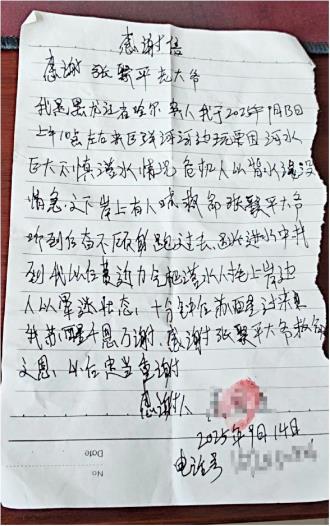 感谢信
感谢 张聚平老大爷
我是黑龙江省哈尔滨人我于2025年9月13日
上午10点左右来巨流河河边玩耍因河水
巨大不慎溺水情况危机人以背水淹没
情急之下岸上有人喊救命张聚平大爷
听到后奋不顾身跑过去 水进水中找
到我以后费边力气把溺水人拖上岸边
人以晕迷状态 十分钟后苏醒过来
我苏醒千恩万谢 感谢张聚平大爷救命
之恩 以后忠益重谢
感谢人
2025年9月14日
电话号
Date
No